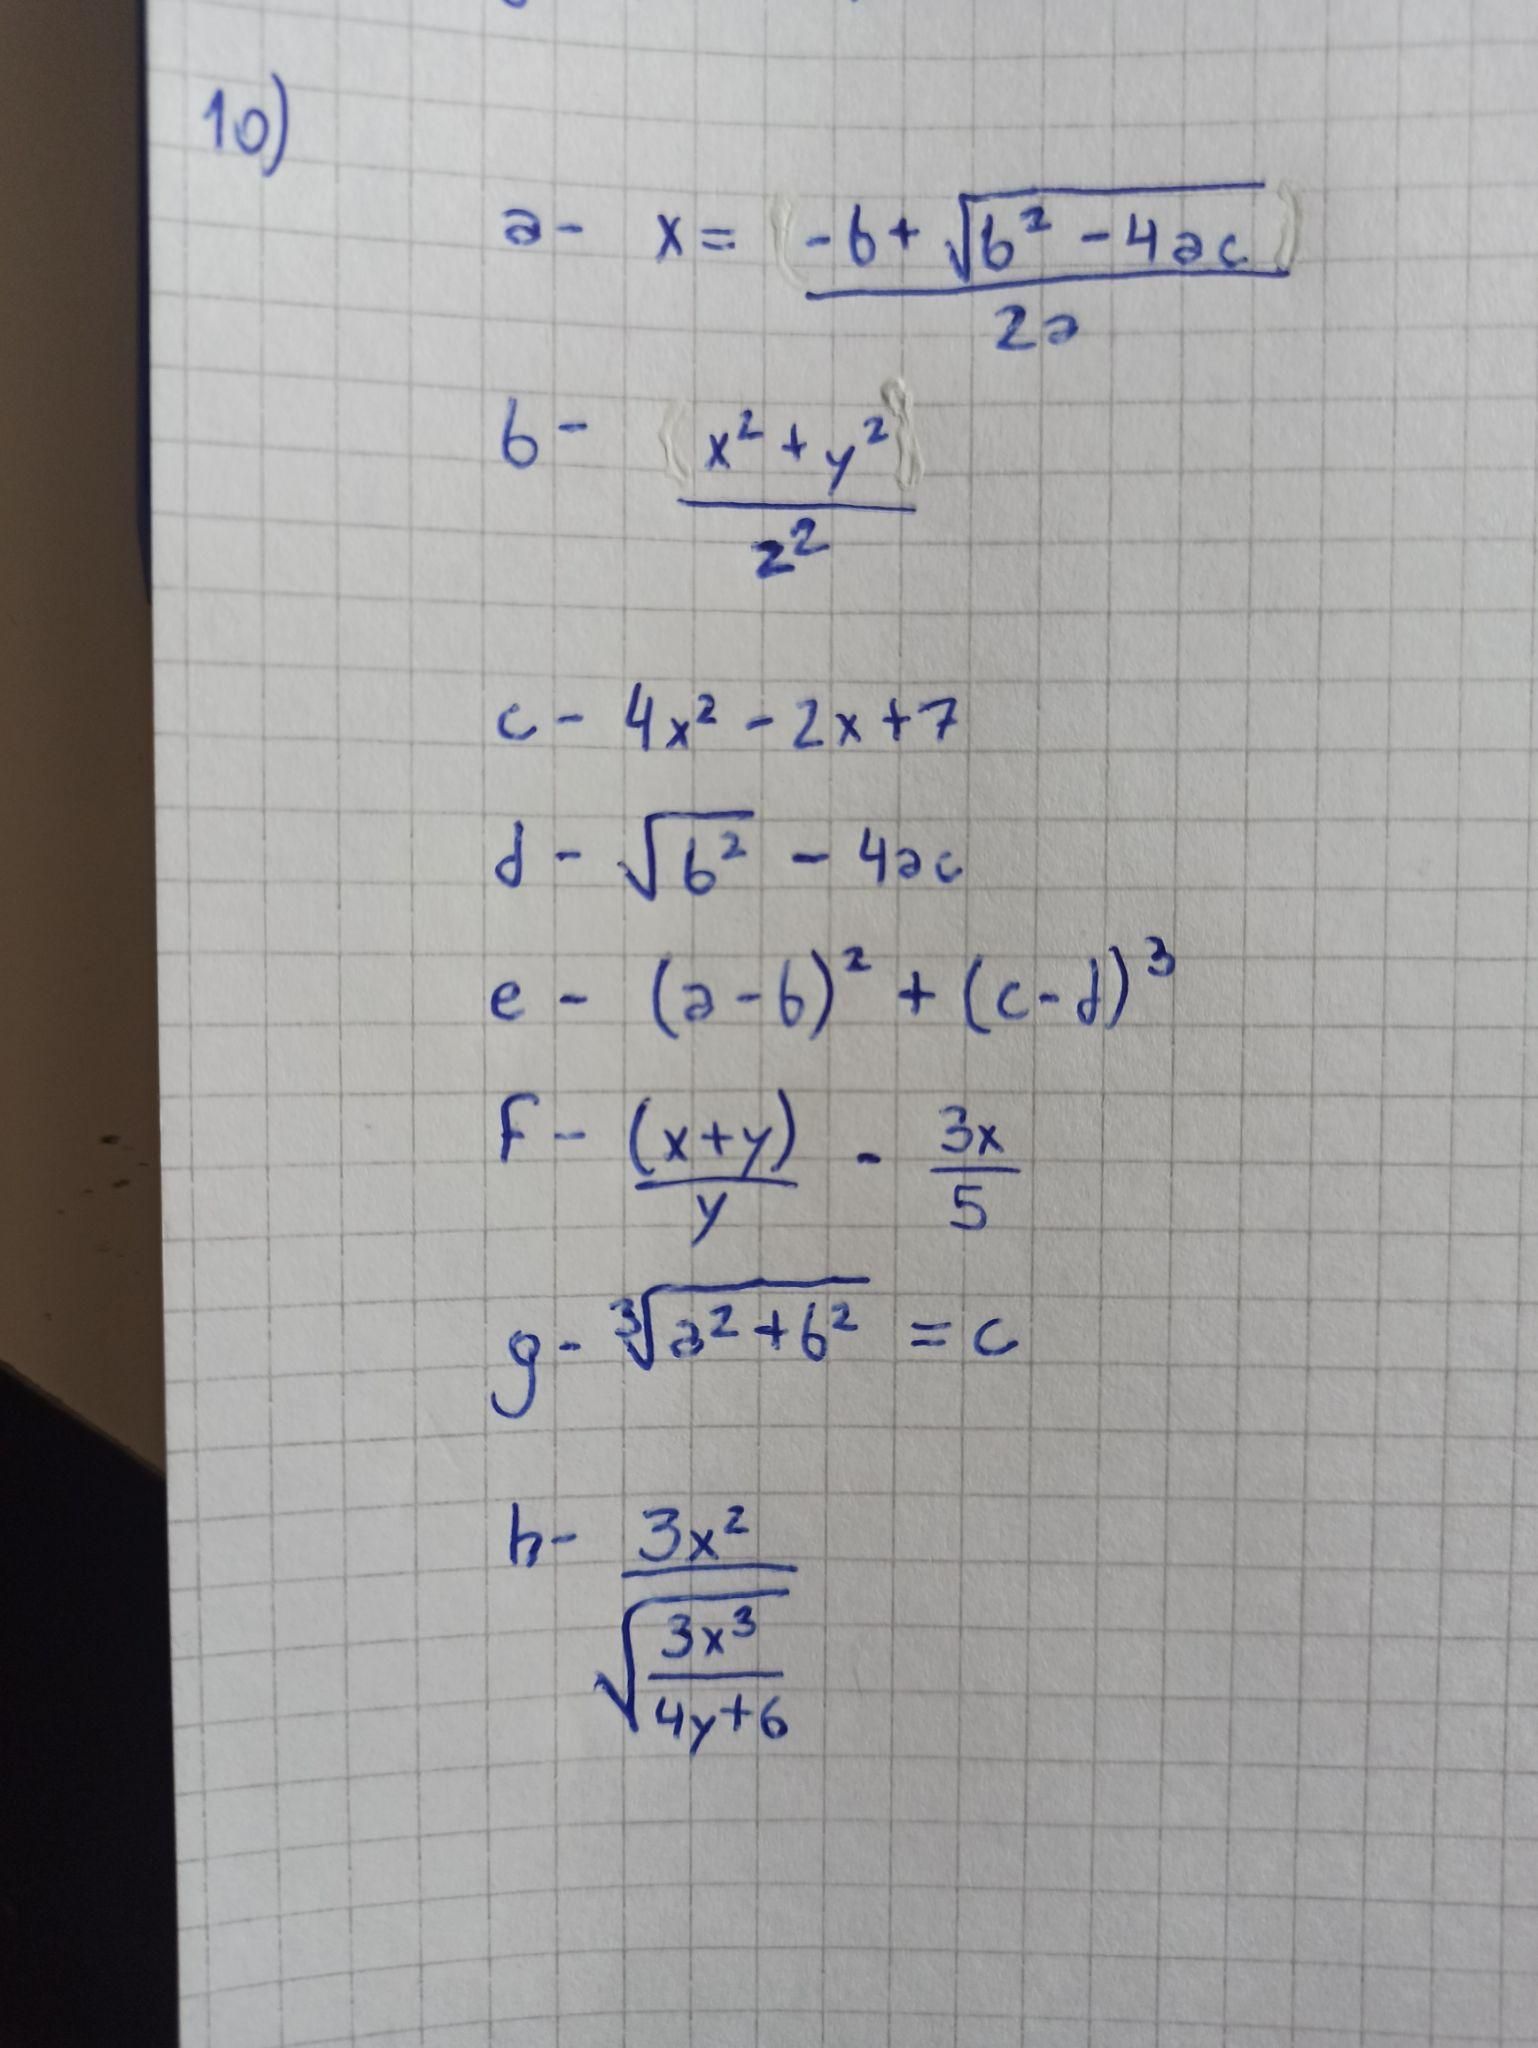 10)
a- x = (-b + √(b² - 4ac)) / 2a
b- (x² + y²) / z²
c- 4x² - 2x + 7
d- √b² - 4ac
e- (a-b)² + (c-d)³
f- (x+y)/y - 3x/5
g- ³√(a² + b²) = c
h- 3x² / √(3x³ / (4y+6))